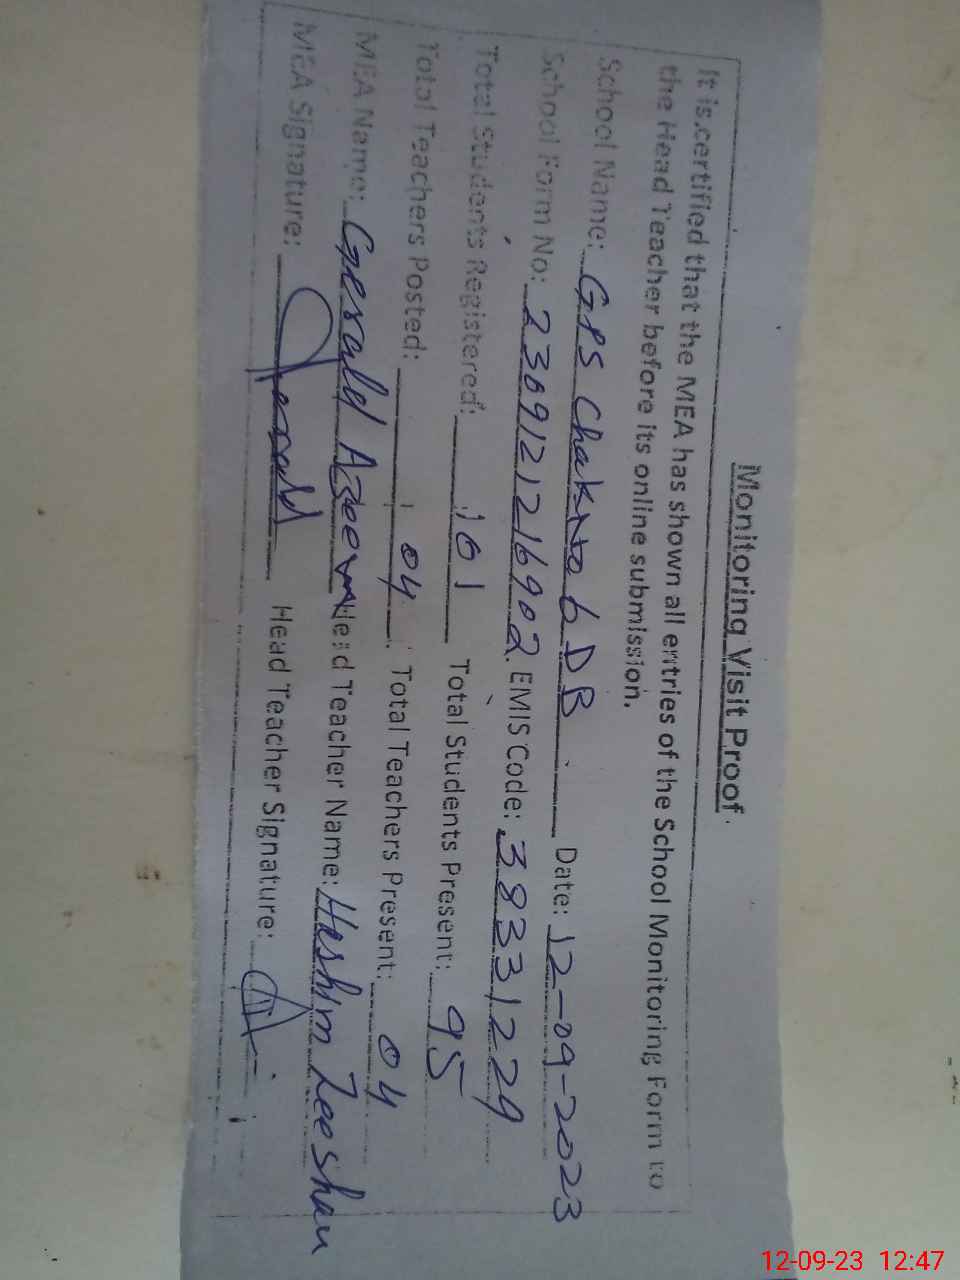 Monitoring Visit Proof
It is certified that the MEA has shown all entries of the School Monitoring Form to
the Head Teacher before its online submission.
School Name: GPS Chak No 6 DB Date: 12-09-2023
School Form No: 2309121216902 EMIS Code: 38331229
Total Students Registered: 101 Total Students Present: 95
Total Teachers Posted: 04 Total Teachers Present: 04
MEA Name: Gerald Azeem Head Teacher Name: Hashim Zeeshan
MEA Signature: Gerald Head Teacher Signature:
12-09-23 12:47